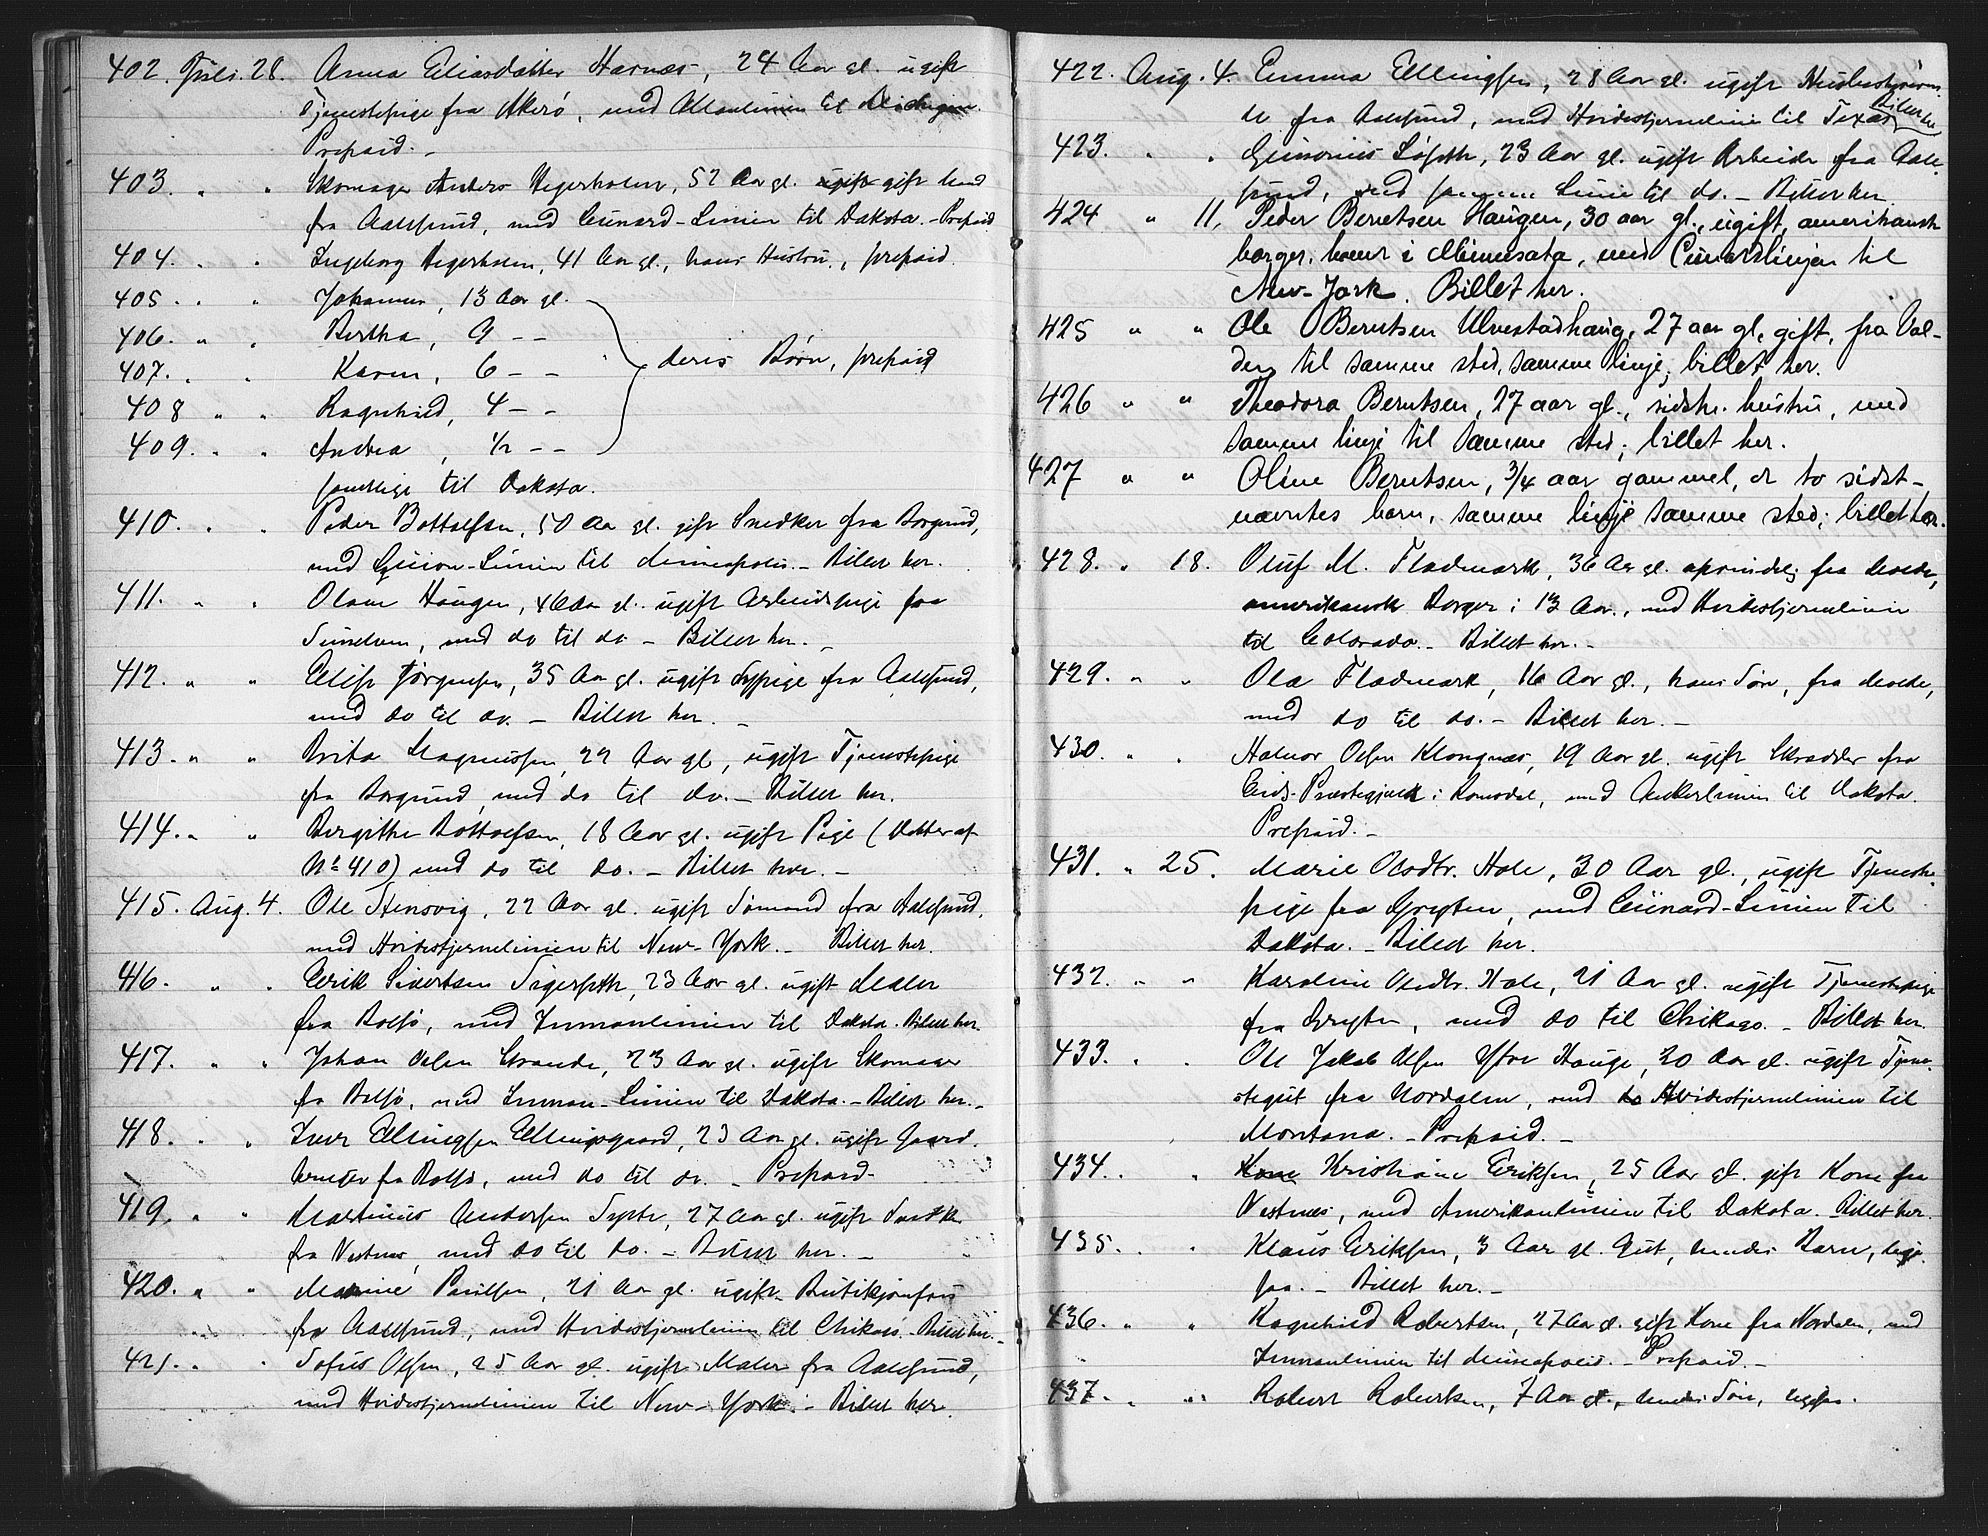 402. Juli. 28. Anna Eliasdatter Harnæs, 24 Aar gl. ugift
Tjenestepige fra Akerö, med Allanlinien til Michigan.
Prepaid. -
403. " " Skomager Anders Hegerholm, 52 Aar gl. ugift gift Mand
fra Aalesund, med Cunard-Linien til Dakota. - Prepaid
404. " " Ingeborg Hegerholm, 41 Aar gl., hans Hustru, prepaid.
405. " " Johanna, 13 Aar gl.
406. " " Bertha, 9 - -
407. " " Karen, 6 - - deris Børn, prepaid
408 " " Ragnhild, 4 - -
409. " " Andrea, 1/2 - -
samtlige til Dakota.
410. " " Peder Bottolfsen, 50 Aar gl. gift Snedker fra Borgund,
med Guion-Linien til Mineapolis. - Billet her.
411. " " Olave Haugen, 46 Aar gl. ugift Arbeidspige fra
Sunelven, med do til do - Billet her. -
412. " " Elise Jørgensen, 35 Aar gl. ugift Sypige fra Aalesund,
med do til do. - Billet her. -
413. " " Brita Magnussen, 22 Aar gl., ugift Tjenestepige
fra Borgund, med do til do. - Billet her.
414. " " Bergithe Bottolfsen, 18 Aar gl. ugift Pige (Datter af
No 410) med do til do. - Billet her. -
415. Aug. 4. Ole Stensvig, 22 Aar gl. ugift Sømand fra Aalesund,
med Hvidestjernelinien til New-York. - Billet her.
416. " " Erik Sivertsen, 23 Aar gl. ugift Maler
fra Bolsø, med Inmanlinien til Dakota. Billet her.
417. " " Johan Olsen Strande, 23 Aar gl. ugift Skomager
fra Bolsø, med Inman-Linien til Dakota. - Billet her. -
418. " " Iver Ellingsen Ellingsgaard, 23 Aar gl. ugift Gaard-
bruger fra Bolsø, med do til do. - Prepaid -
419. " " Martinus Andersen, 27 Aar gl. ugift Snedker
fra Vestnes, med do til do. - Billet her. -
420. " " Marine Paulsen, 21 Aar gl. ugift Butikjomfru
fra Aalesund, med Hvidestjernelinien til Chikago. Billet her. -
421. " " Sofus Olsen, 25 Aar gl. ugift Maler fra Aalesund,
med Hvidestjernelinien til New-York. - Billet her.
422. Aug. 4. Emma Ellingsen, 28 Aar gl. ugift Husbestyrerin-
de fra Aalesund, med Hvidestjernelinie til Texas Billet her
423. " " Gunerius Løseth, 23 Aar gl. ugift Arbeider fra Aale-
sund, med samme Linie til do. - Billet her
424 " 11, Peder Berntsen Haugen, 30 aar gl., ugift, amerikansk
borger, hører i Minnesata, med Cunardlinjen til
New-York. Billet her.
425 " " Ole Berntsen Ulvestadhaug, 27 aar gl, gift, fra Val-
den til samme sted, samme linje; billet her.
426 " " Theodora Berntsen, 27 aar gl., sidstn. hustru, med
samme linje til samme sted; billet her.
427 " " Oline Berntsen, 3/4 aar gammel, de to sidst-
nævntes barn, samme linje samme sted; billet her.
428. " 18. Oluf M. Fladmark, 36 Aar gl. oprindelig fra Molde,
amerikansk Borger i 13 Aar., med Hvidestjernelinien
til Colorado. - Billet her. -
429. " " Ola Fladmark, 16 Aar gl., hans Søn, fra Molde,
med do til do. - Billet her. -
430. " " Halvor Olsen Klongnæs, 19 Aar gl. ugift Skrædder fra
Eids-Præstegjæld i Romsdal, med Ankerlinien til Dakota.
Prepaid. -
431. " 25. Marie Olsdtr. Hole, 30 Aar gl., ugift Tjeneste-
pige fra Grytten, med Cunard-Linien til
Dakota. - Billet her.
432. " " Karoline Olsdtr. Hole, 21 Aar gl. ugift Tjenestepige
fra Grytten, med do til Chikago. - Billet her.
433. " " Ole Jakob Olsen Ytre Hauge, 20 Aar gl. ugift Tjene-
stegut fra Nordalen, med do Hvidestjernelinien til
Montana. - Prepaid. -
434. " " Kone Kristiane Eriksen, 25 Aar gl. gift Kone fra
Vestnes, med Amerikanlinien til Dakota. Billet her.
435. " " Klaus Eriksen, 3 Aar gl. Gut, hendes Barn, lige-
saa. - Billet her. -
436. " " Ragnhild Robertsen, 27 Aar gl. gift Kone fra Nordalen, med
Inmanlinien til Mineapolis. - Prepaid. -
437. " " Robert Robertsen, 7 Aar gl., hendes Søn, ligesaa.